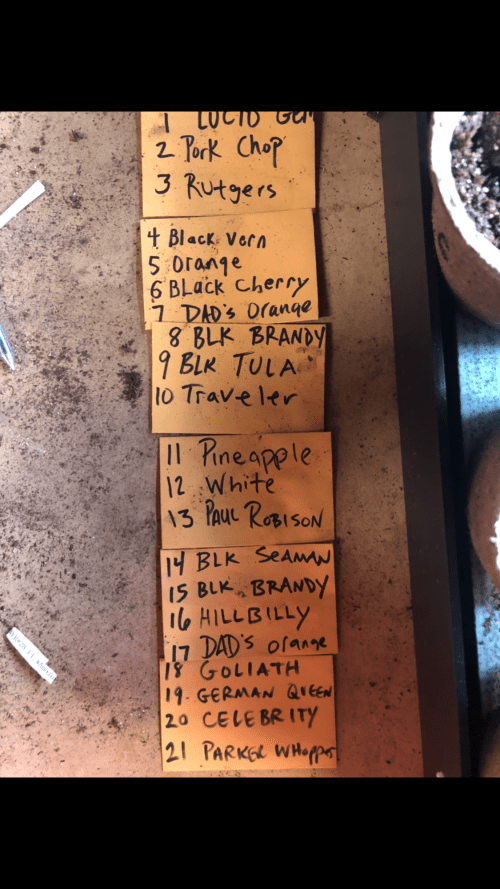 1 LUCID GEM
2 Pork Chop
3 Rutgers
4 Black Vern
5 Orange
6 BLack Cherry
7 DAD'S Orange
8 BLK BRANDY
9 BLK TULA
10 Traveler
11 Pineapple
12 White
13 PAUL ROBISON
14 BLK SEAMAN
15 BLK BRANDY
16 HILLBILLY
17 DAD'S orange
18 GOLIATH
19. GERMAN QUEEN
20 CELEBRITY
21 PARKER WHopper